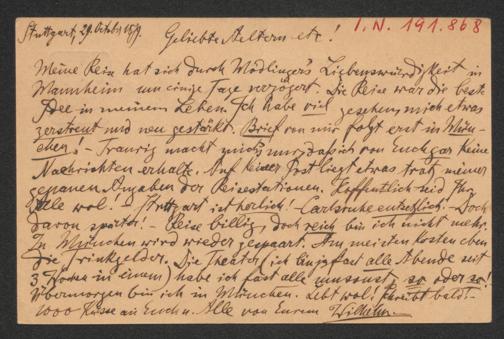 Stuttgart, 29. October 1889.
I. N. 191.868
Geliebte Aeltern etc!
Meine Reise hat sich durch Mödlinger's Liebenswürdigkeit in
Mannheim um einige Tage verzögert. Die Reise war die beste
Idee in meinem Leben. Ich habe viel gesehen, mich etwas
zerstreut und neu gestärkt. Brief von mir folgt erst in Mün-
chen! – Traurig macht mich nur, daß ich von Euch gar keine
Nachrichten erhalte. Auf keiner Post liegt etwas trotz meiner
genauen Angaben der Reisestationen. Hoffentlich seid Ihr
Alle wol! – Stuttgart ist herlich! – Carlsruhe entsetzlich! – Doch
davon später! – Reise billig, doch reich bin ich nicht mehr.
In München wird wieder gespart. Am meisten kosten eben
die Trinkgelder. Die Theater (ich bin ja fast alle Abende seit
3 Wochen in einem) habe ich fast alle umsonst, so oder so!
Übermorgen bin ich in München. Lebt wol! Schreibt bald! –
1000 Küsse an Euch u. Alle von Eurem Wilhelm.